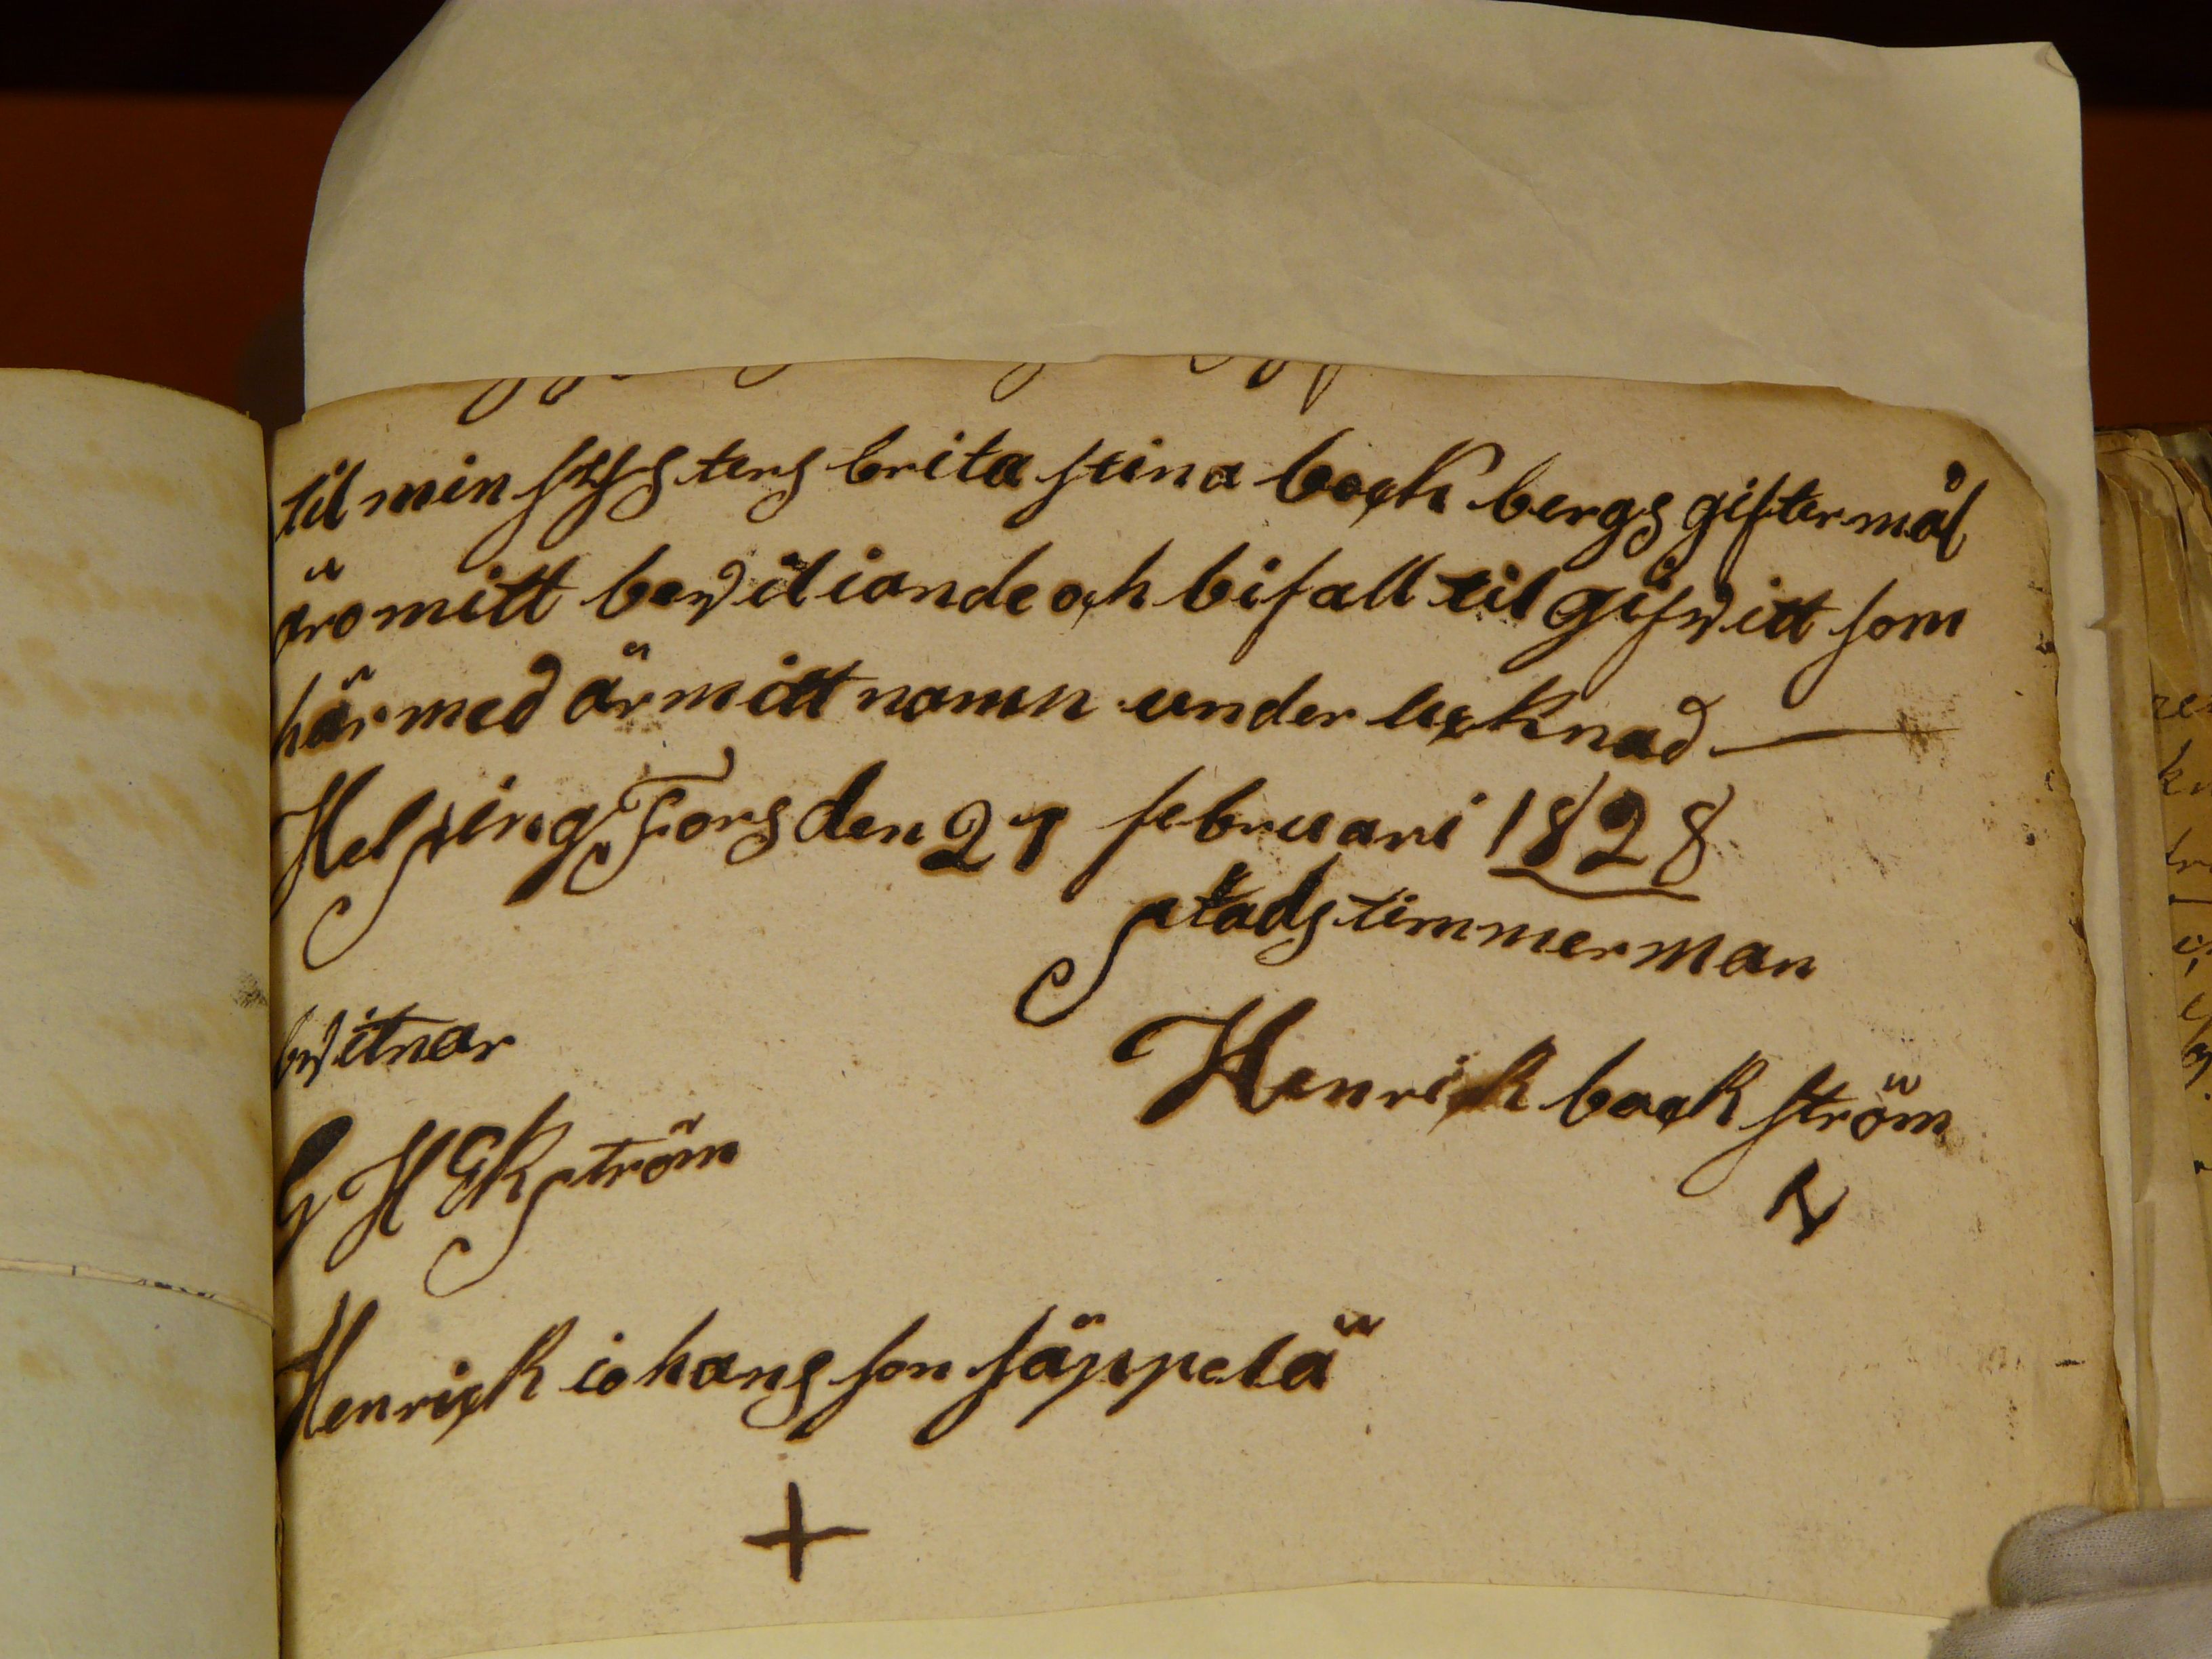 til min systers brita stina bock bergs giftermål
äro mitt bewiliande och bifall til gifwitt som
här med är mitt namn under tecknad
Helsing Fors den 27 februari 1828
stads timmerman
bwitnar
Henrick bock ström
G H Ekström
Henrick iohans son säppelä
+